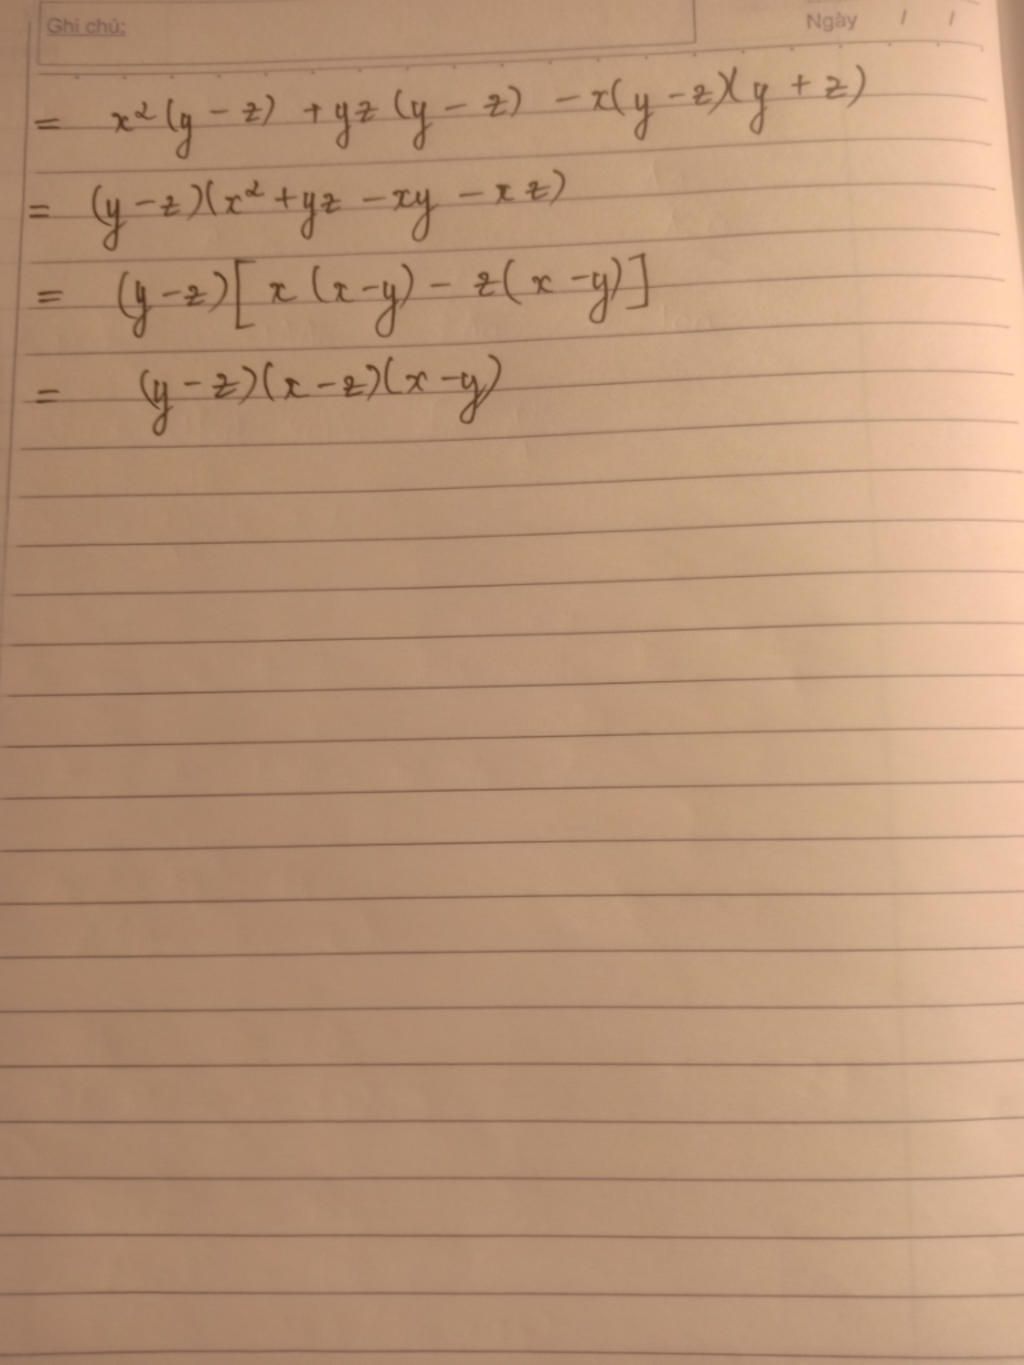 Ghi chú:
Ngày / /
= x²(y - z) + yz(y - z) - x(y - z)(y + z)
= (y - z)(x² + yz - xy - xz)
= (y - z)[x(x - y) - z(x - y)]
= (y - z)(x - z)(x - y)